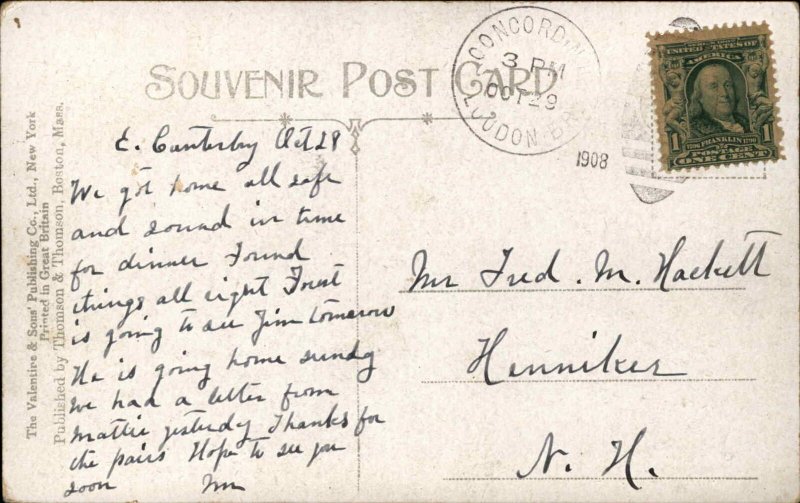 SOUVENIR POST CARD
CONCORD, N.
3 PM
OCT 29
LOUDON
1908
UNITED STATES OF
AMERICA
1 FRANKLIN 1
POSTAGE
ONE CENT
The Valentine & Sons' Publishing Co., Ltd., New York
Printed in Great Britain
Published by Thomson & Thomson, Boston, Mass.
E. Canterby Oct 28
We got home all safe
and sound in time
for dinner Found
things all right Forest
is going to see Jim tomorow
He is going home sundy
we had a letter from
Mattie yesterdy Thanks for
the pairs Hope to see you
soon
Mr Fred. M. Hackett
Henniker
N. H.